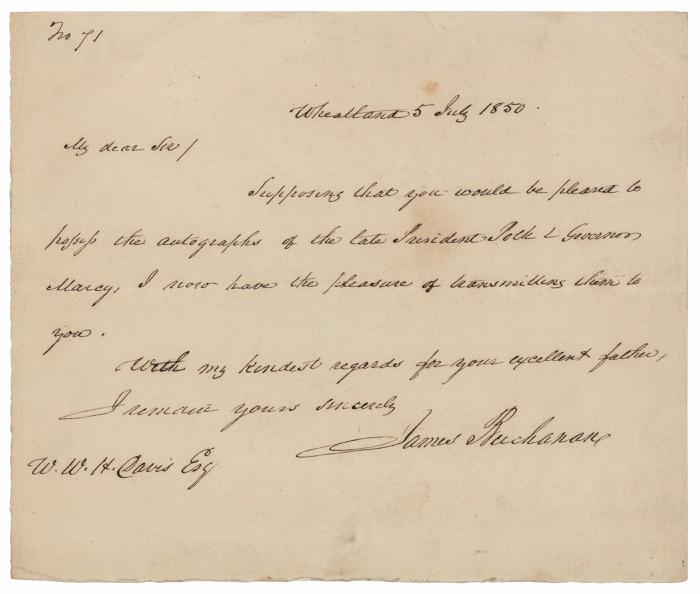 No 71
Wheatland 5 July 1850.
My dear Sir/
Supposing that you would be pleased to
possess the autographs of the late President Polk & Governor
Marcy, I now have the pleasure of transmitting them to
you.
With my kindest regards for your excellent father,
I remain yours sincerely
James Buchanan
W. W. H. Davis Esq